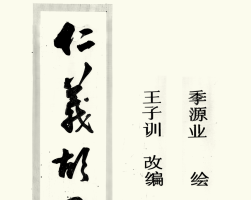 仁義胡
王子训 改编
季源业 绘